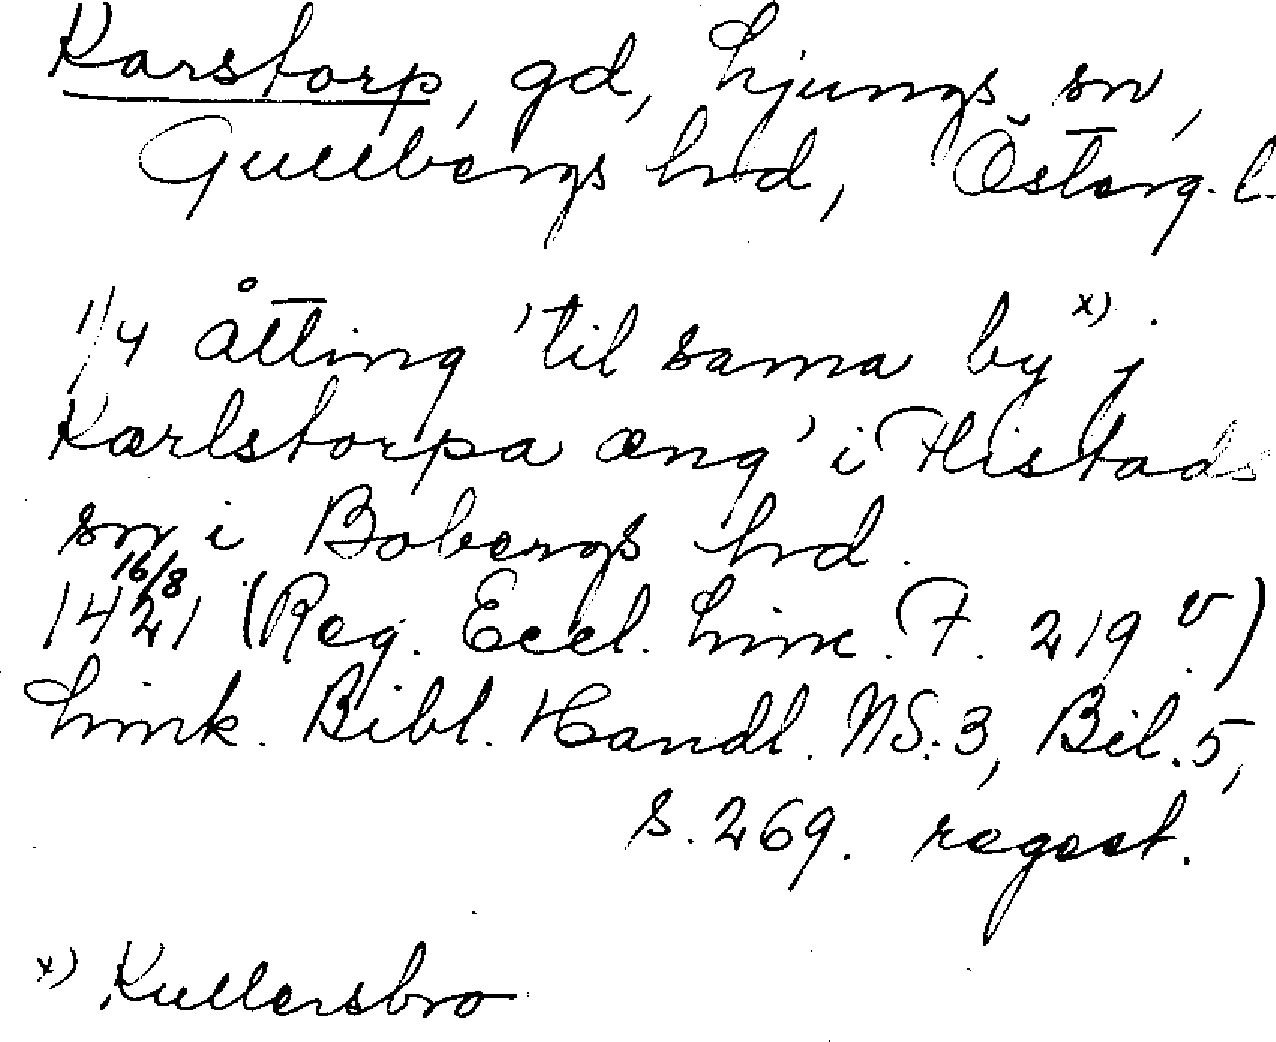 Karstorp, gd, Ljungs sn,
Gullbergs hd, Österg. l.
1/4 åtting 'til sama by x) j
Karlstorpa æng' i Flistads
sn i Bobergs hd.
16/8
1421 (Reg. Eccl. Linc. F. 219 v)
Link. Bibl. Handl. NS. 3, Bil. 5,
s. 269. regest.
x) Kullersbro